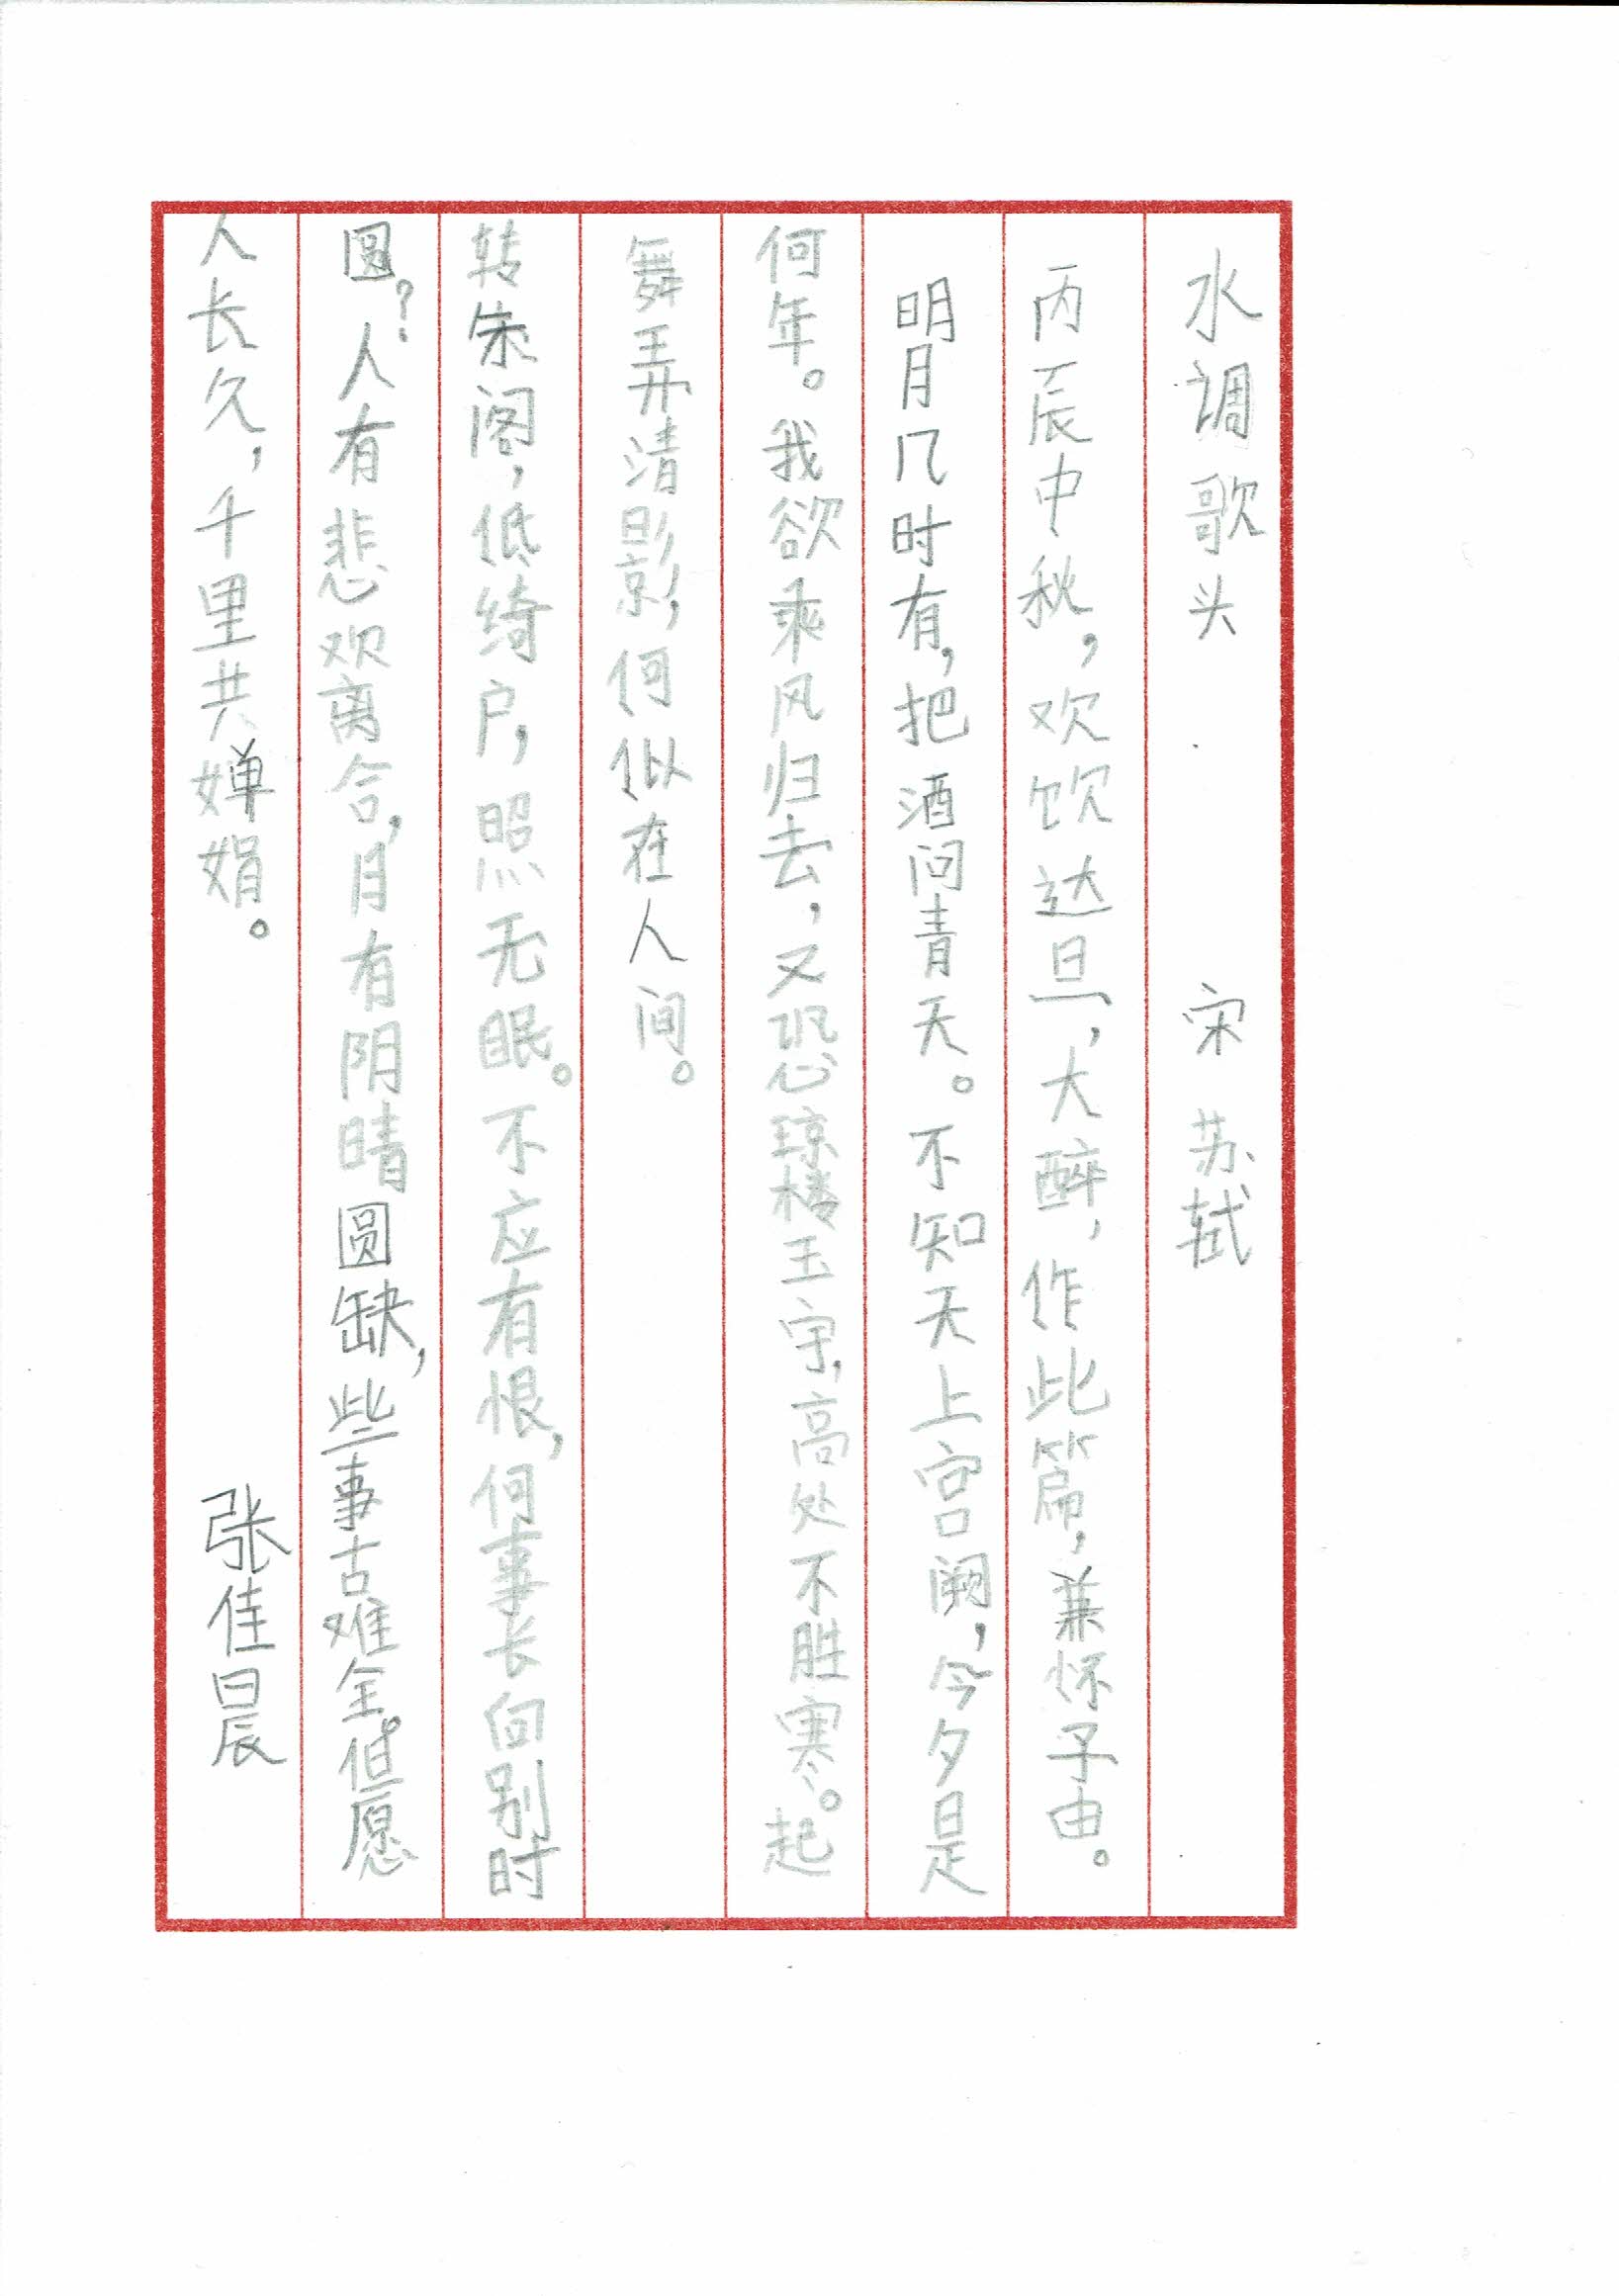 水调歌头 宋 苏轼
丙辰中秋，欢饮达旦，大醉，作此篇，兼怀子由。
明月几时有，把酒问青天。不知天上宫阙，今夕是
何年。我欲乘风归去，又恐琼楼玉宇，高处不胜寒。起
舞弄清影，何似在人间。
转朱阁，低绮户，照无眠。不应有恨，何事长向别时
圆？人有悲欢离合，月有阴晴圆缺，些事古难全。但愿
人长久，千里共婵娟。 张佳晨